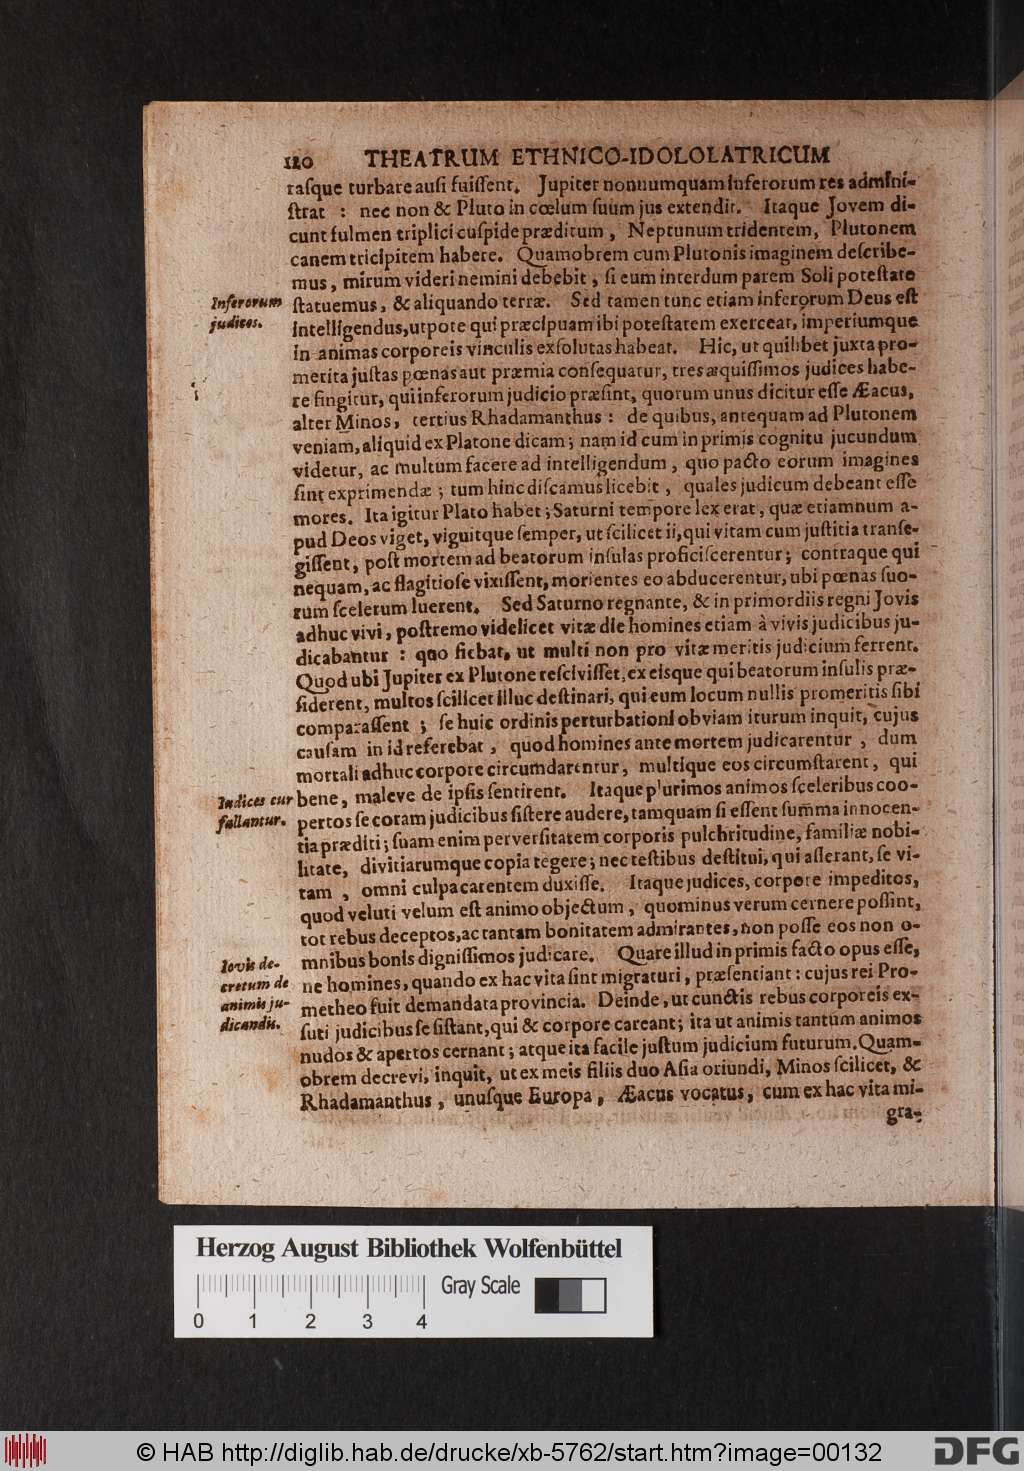 120 THEATRUM ETHNICO-IDOLOLATRICUM
raſque turbare auſi fuiſſent. Jupiter nonnumquam inferorum res admini-
ſtrat : nec non & Pluto in cœlum ſuum jus extendit. Itaque Jovem di-
cunt fulmen triplici cuſpide præditum, Neptunum tridentem, Plutonem
canem tricipitem habere. Quamobrem cum Plutonis imaginem deſcribe-
mus, mirum videri nemini debebit, ſi eum interdum parem Soli poteſtate
Inferorum
judices.
ſtatuemus, & aliquando terræ. Sed tamen tunc etiam inferorum Deus eſt
intelligendus, utpote qui præcipuam ibi poteſtatem exerceat, imperiumque
in animas corporeis vinculis exſolutas habeat. Hic, ut quilibet juxta pro-
merita juſtas pœnas aut præmia conſequatur, tres æquiſſimos judices habe-
re fingitur, qui inferorum judicio præſint, quorum unus dicitur eſſe Æacus,
alter Minos, tertius Rhadamanthus : de quibus, antequam ad Plutonem
veniam, aliquid ex Platone dicam ; nam id cum in primis cognitu jucundum
videtur, ac multum facere ad intelligendum, quo pacto eorum imagines
ſint exprimendæ ; tum hinc diſcamus licebit, quales judicum debeant eſſe
mores. Ita igitur Plato habet ; Saturni tempore lex erat, quæ etiamnum a-
pud Deos viget, viguitque ſemper, ut ſcilicet ii, qui vitam cum juſtitia tranſe-
giſſent, poſt mortem ad beatorum inſulas proficiſcerentur ; contraque qui
nequam, ac flagitioſe vixiſſent, morientes eo abducerentur, ubi pœnas ſuo-
rum ſcelerum luerent. Sed Saturno regnante, & in primordiis regni Jovis
adhuc vivi, poſtremo videlicet vitæ die homines etiam à vivis judicibus ju-
dicabantur : quo fiebat, ut multi non pro vitæ meritis judicium ferrent.
Quod ubi Jupiter ex Plutone reſciviſſet, ex eisque qui beatorum inſulis præ-
ſiderent, multos ſcilicet illuc deſtinari, qui eum locum nullis promeritis ſibi
comparaſſent ; ſe huic ordinis perturbationi obviam iturum inquit, cujus
cauſam in id referebat, quod homines ante mortem judicarentur, dum
mortali adhuc corpore circumdarentur, multique eos circumſtarent, qui
Iudices cur
fallantur.
bene, maleve de ipſis ſentirent. Itaque plurimos animos ſceleribus coo-
pertos ſe coram judicibus ſiſtere audere, tamquam ſi eſſent ſumma innocen-
tia præditi ; ſuam enim perverſitatem corporis pulchritudine, familiæ nobi-
litate, divitiarumque copia tegere ; nec teſtibus deſtitui, qui aſſerant, ſe vi-
tam, omni culpa carentem duxiſſe. Itaque judices, corpore impeditos,
quod veluti velum eſt animo objectum, quominus verum cernere poſſint,
tot rebus deceptos, ac tantam bonitatem admirantes, non poſſe eos non o-
mnibus bonis digniſſimos judicare. Quare illud in primis facto opus eſſe,
Iovis de-
cretum de
animis ju-
dicandis.
ne homines, quando ex hac vita ſint migraturi, præſentiant : cujus rei Pro-
metheo fuit demandata provincia. Deinde, ut cunctis rebus corporeis ex-
ſuti judicibus ſe ſiſtant, qui & corpore careant ; ita ut animis tantum animos
nudos & apertos cernant ; atque ita facile juſtum judicium futurum. Quam-
obrem decrevi, inquit, ut ex meis filiis duo Aſia oriundi, Minos ſcilicet, &
Rhadamanthus, unuſque Europa, Æacus vocatus, cum ex hac vita mi-
gra-
Herzog August Bibliothek Wolfenbüttel
Gray Scale
0 1 2 3 4
© HAB http://diglib.hab.de/drucke/xb-5762/start.htm?image=00132
DFG